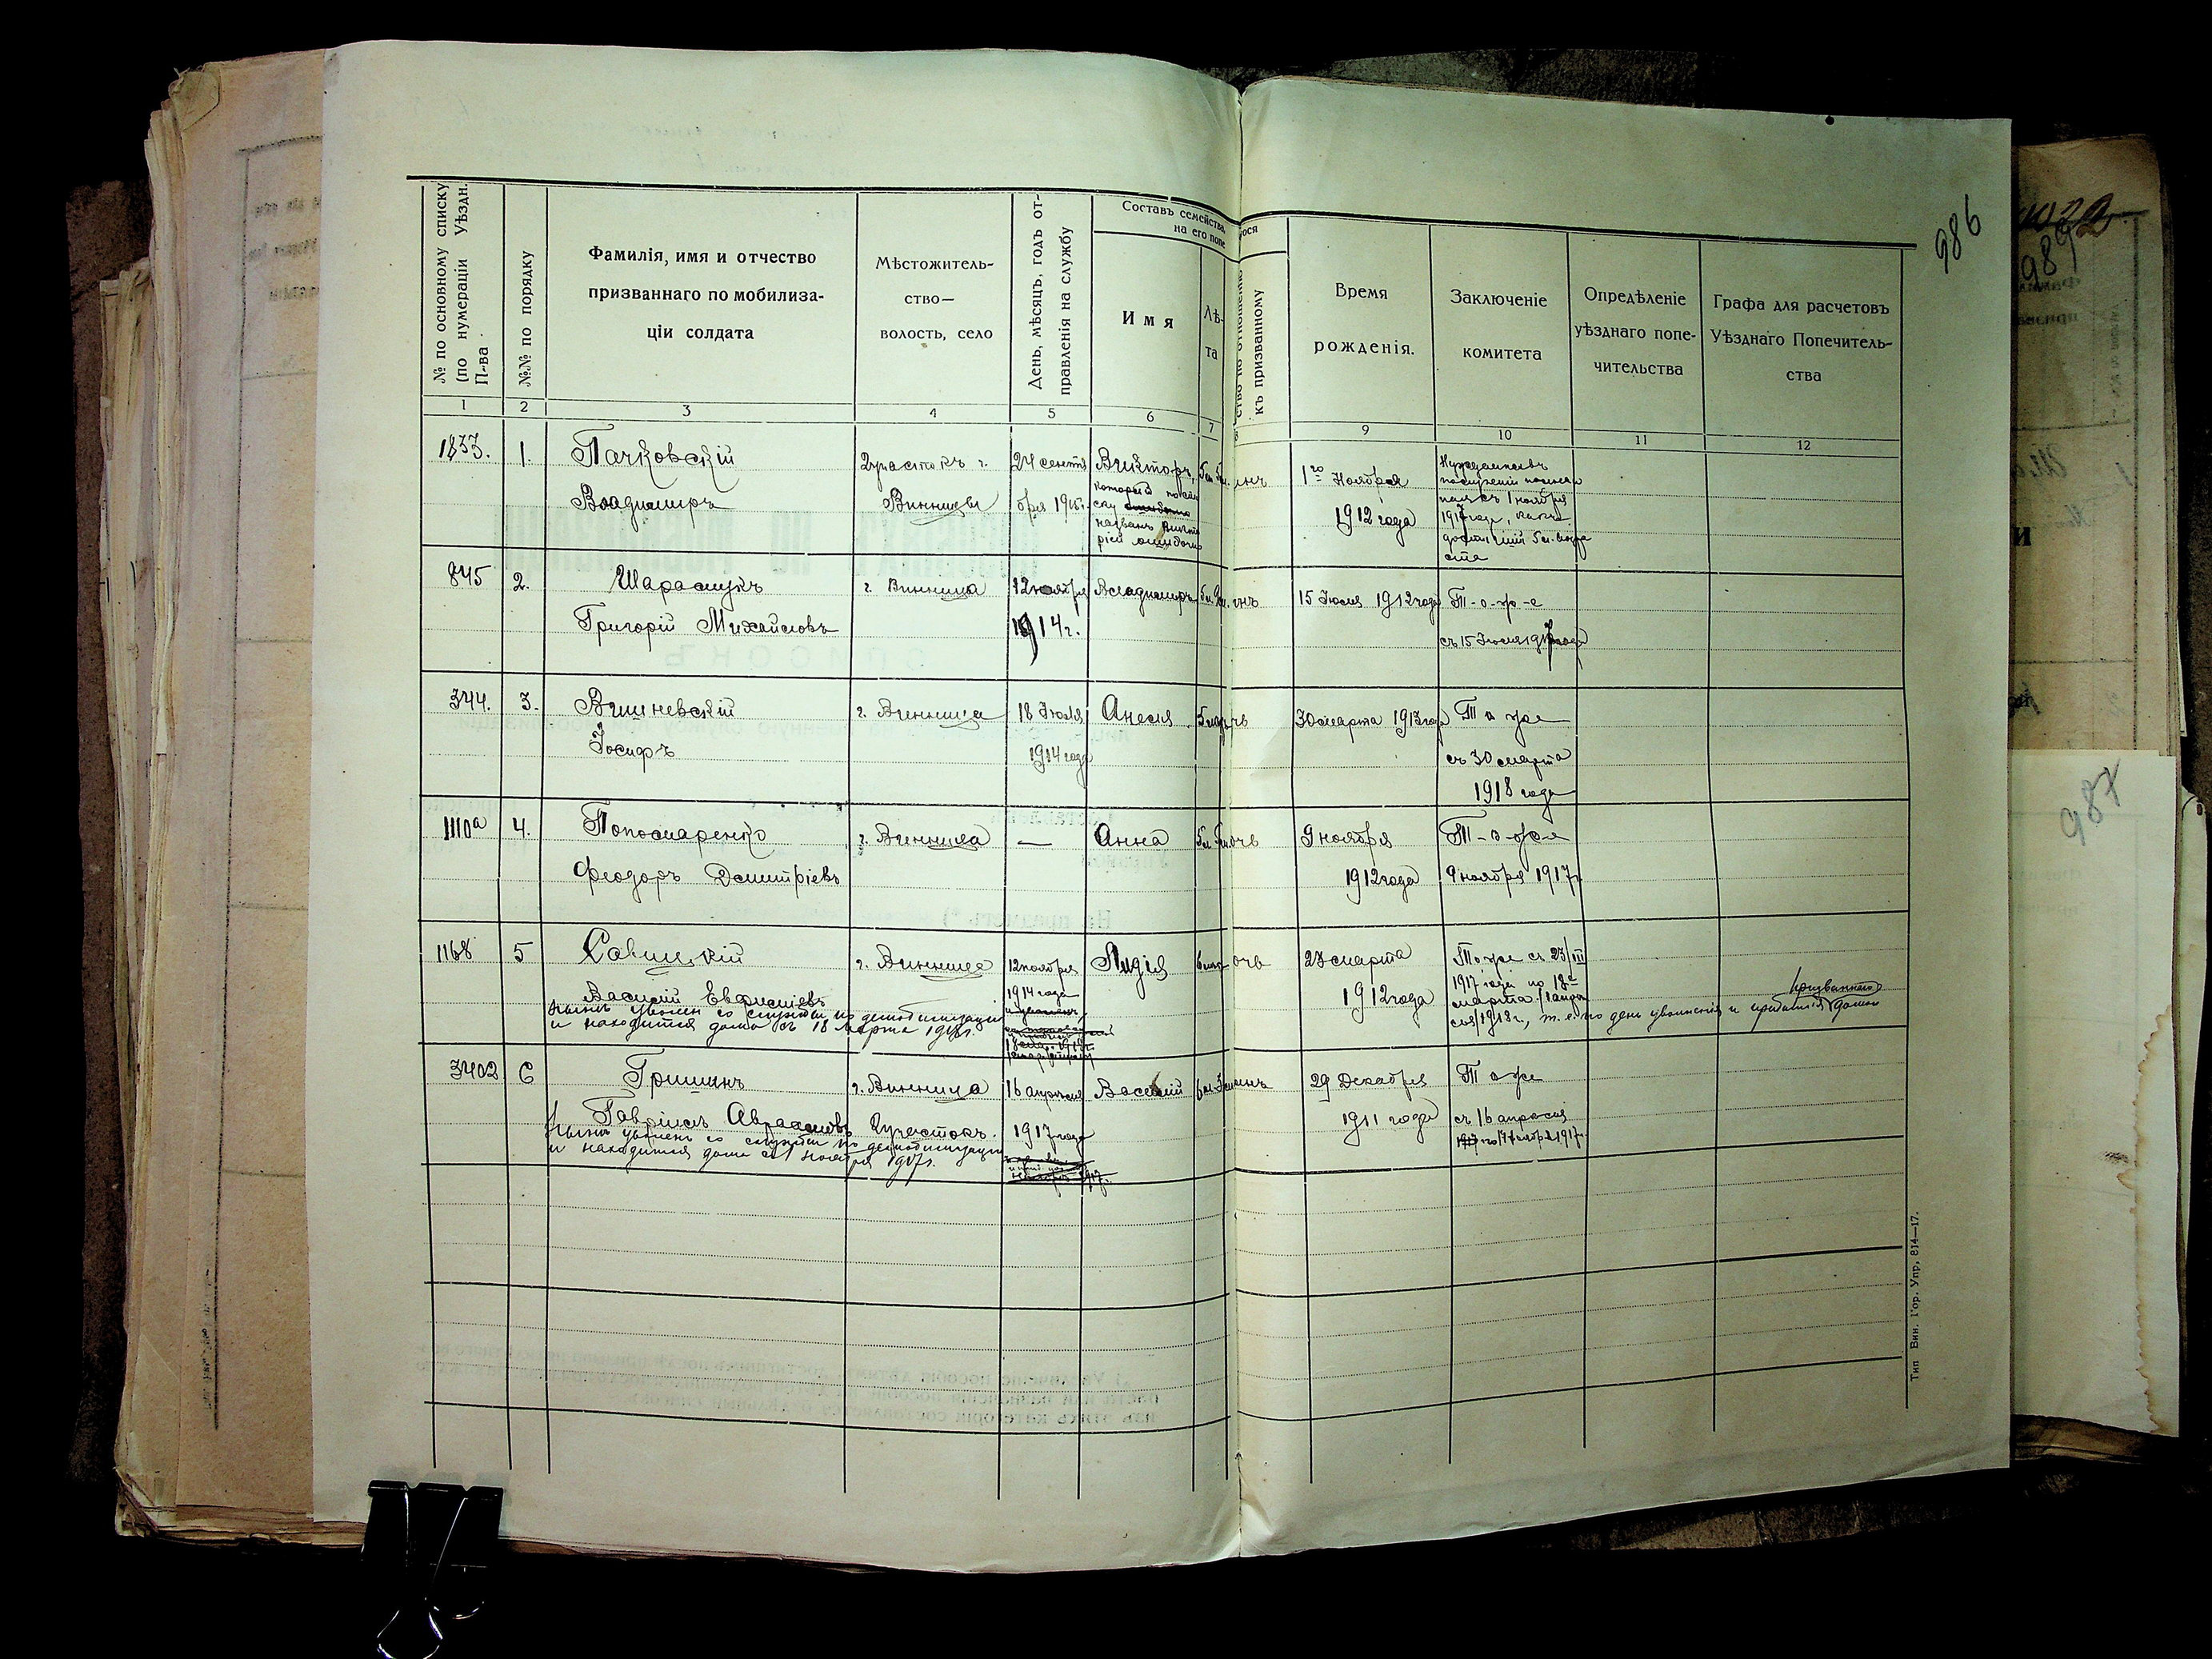 986
№ по основному списку
(по нумераціи Уѣздн.
П-ва
№№ по порядку
Фамилія, имя и отчество
призваннаго по мобилиза-
ціи солдата
Мѣстожитель-
ство—
волость, село
День, мѣсяцъ, годъ от-
правленія на службу
Составъ семейства,
на его попе
Имя
Лѣ-
та
къ призванному
Время
рожденія.
Заключеніе
комитета
Опредѣленіе
уѣзднаго попе-
чительства
Графа для расчетовъ
Уѣзднаго Попечитель-
ства
1 2 3 4 5 6 7 9 10 11 12
1833. 1. Пачковскій
Владимиръ
2 участокъ г.
Винницы
24 сентя
бря 1915г.
Викторъ,
который по спи
ску
названъ Викто
ріей ошибочно
1го Ноября
1912 года
1 ноября
845 2. Шарамукъ
Григорій Михайловъ
г. Винница
12 ноября
1914 г.
Владимиръ
15 Іюля 1912 года
Т-о-ж-е
съ 15 Іюля 1917 года
344. 3. Вишневскій
Іосифъ
г. Винница
18 Іюля
1914 года
Анеля
30 марта 1913 года
То же
съ 30 марта
1918 года
1110а 4. Попомаренко
Феодоръ Дмитріевъ
г. Винница
—
Анна
9 ноября
1912 года
Т-о-ж-е
9 ноября 1917г
1168 5 Савицкій
Василій Евфиміевъ
нынѣ уволен со службы по демобилизаціи
и находится дома съ 18 марта 1918г.
г. Винница
12 ноября
1914 года
Лидія
23 марта
1912 года
То же съ 23/III
1917 года по 18е
марта /1 апрѣ
ля/ 1918 г., т. е. по день увольненія и прибытія призваннаго домой
3402 6 Гришинъ
Гавріилъ Авраамовъ
нынѣ уволенъ со службы по демобилизаціи
и находится дома съ 1 ноября 1917г.
г. Винница
2 участокъ.
16 апрѣля
1917 года
Василій
29 Декабря
1911 года
То же
съ 16 апрѣля
Тип Вин. Гор. Упр, 814—17.
987
989